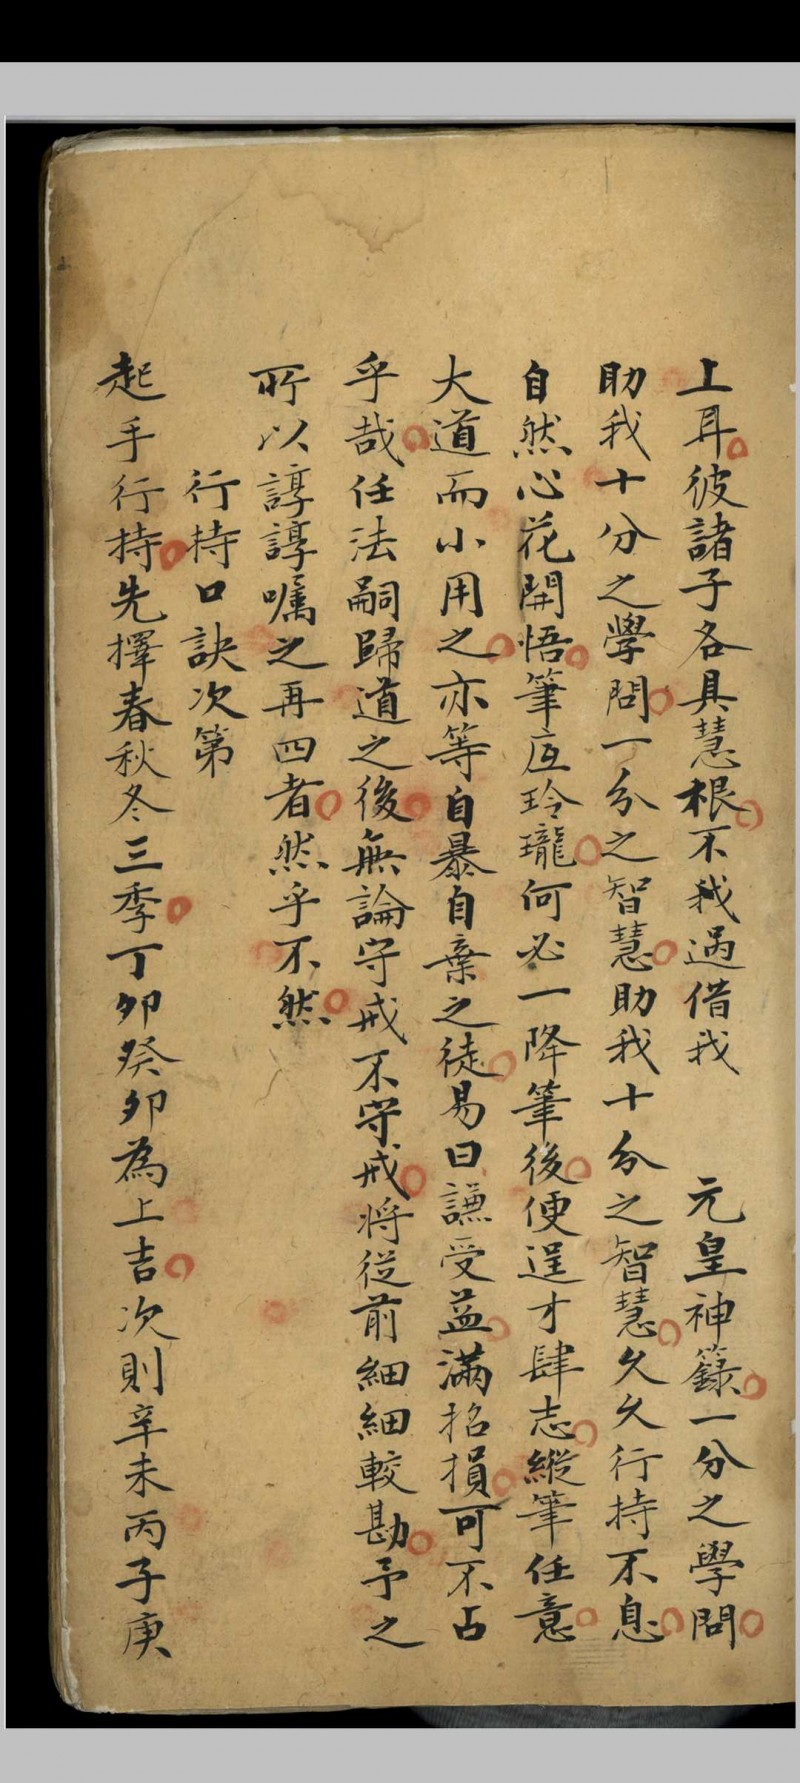 上耳彼諸子各具慧根不我過借我　元皇神籙一分之學問
助我十分之學問一分之智慧助我十分之智慧久久行持不息
自然心花開悟筆底玲瓏何必一降筆後便逞才肆志縱筆任意
大道而小用之亦等自暴自棄之徒易曰謙受益滿招損可不占
乎哉任法嗣歸道之後無論守戒不守戒將從前細細較勘予之
所以諄諄囑之再四者然乎不然
行持口訣次第
起手行持先擇春秋冬三季丁卯癸卯為上吉次則辛未丙子庚